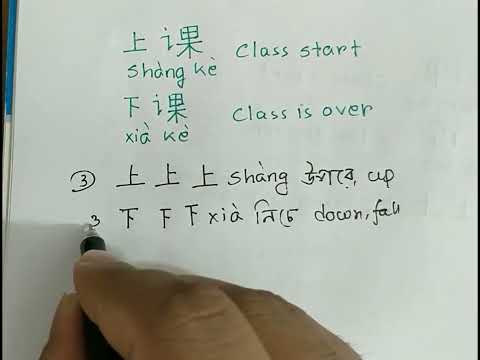 上课 Class start
shàng kè
下课 Class is over
xià kè
③ 上 上 上 shàng উপরে, up
3 下 下 下 xià নিচে down, fall